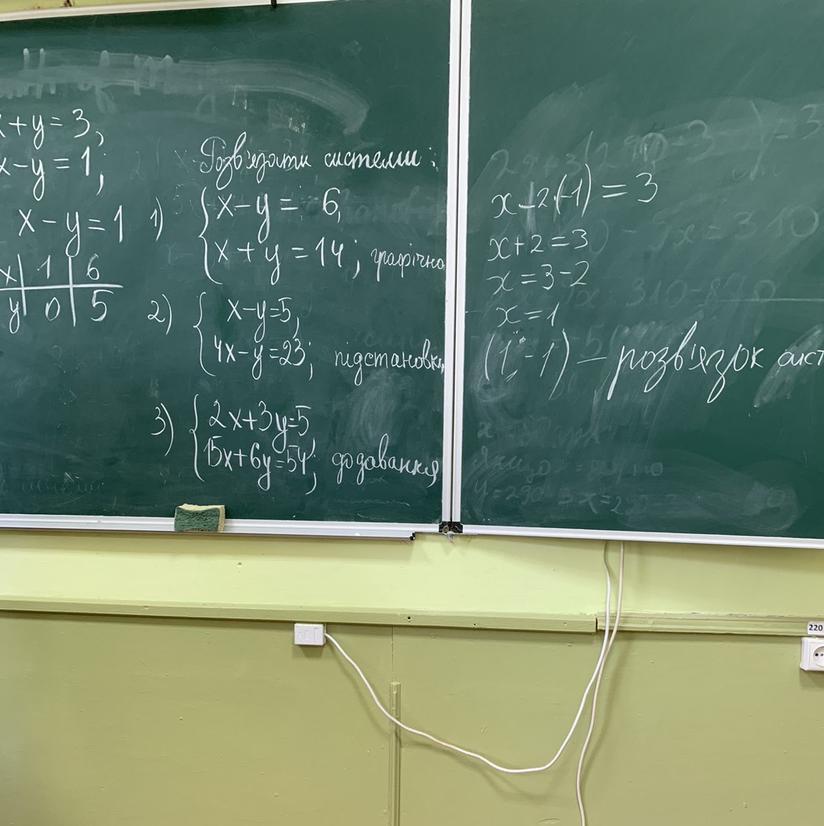 x + y = 3,
x - y = 1;
x - y = 1
x | 1 | 6
y | 0 | 5
Розв'язати системи:
1) { x - y = 6,
x + y = 14; графічно
2) { x - y = 5,
4x - y = 23; підстановки
3) { 2x + 3y = 5,
15x + 6y = 54; додавання
x - 2·(-1) = 3
x + 2 = 3
x = 3 - 2
x = 1
(1; -1) – розв'язок сист
220